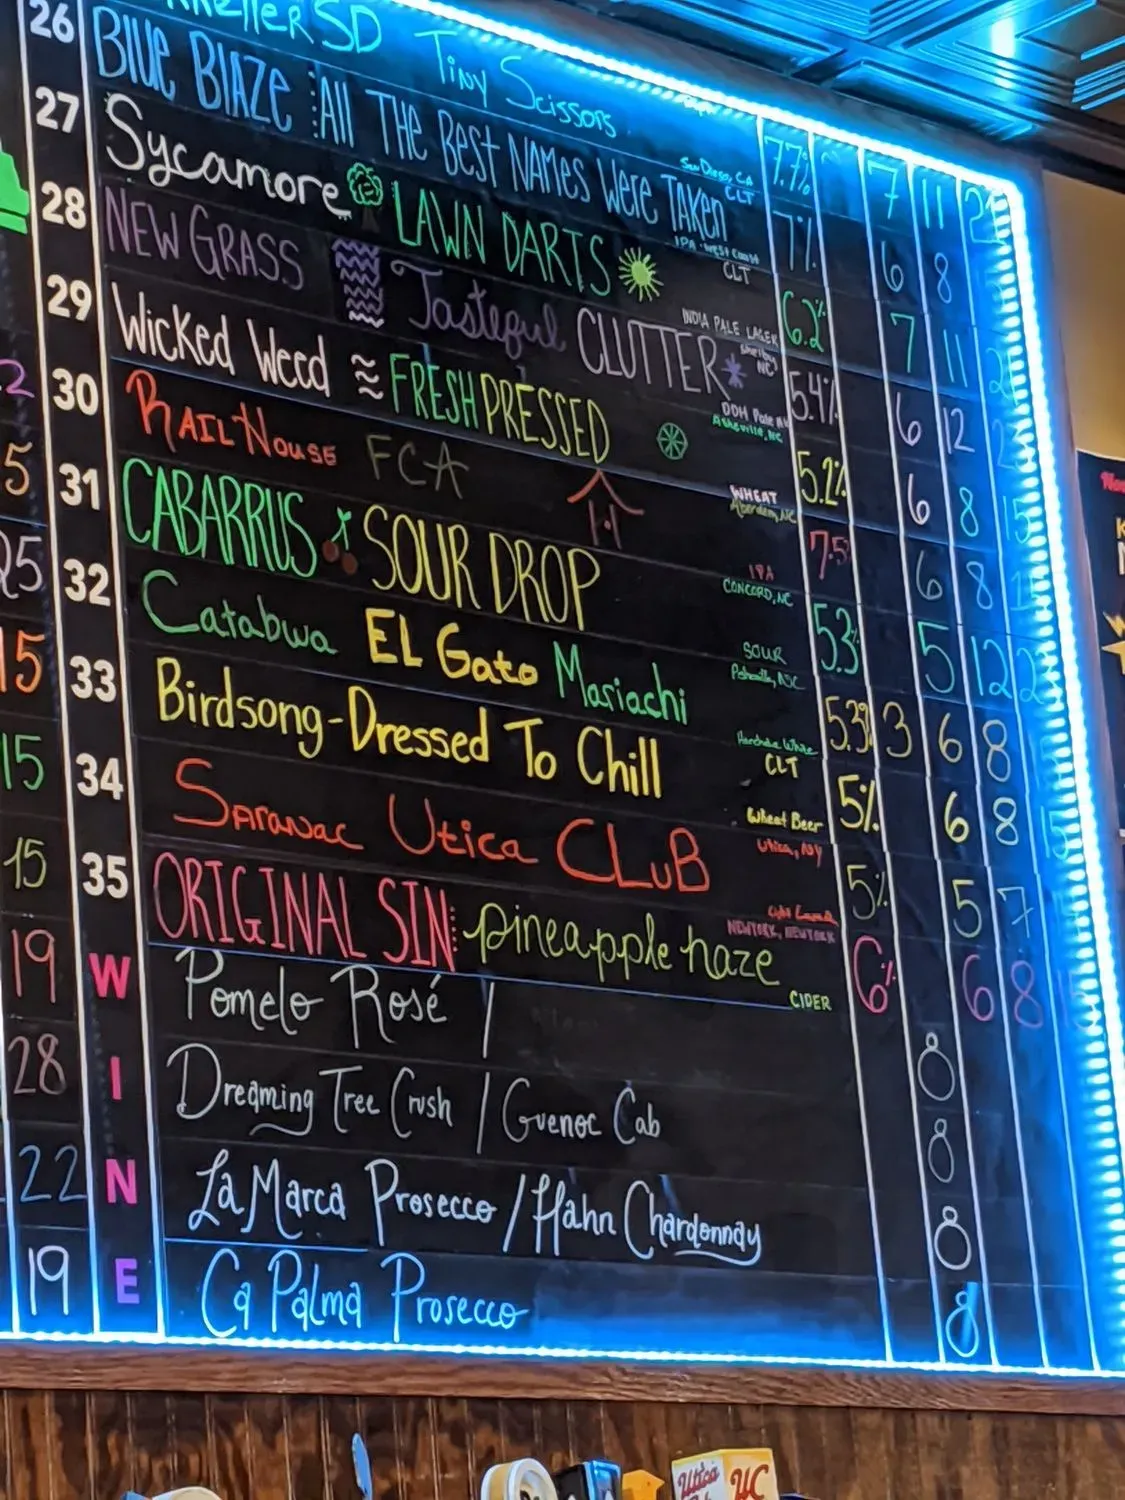 Kkeller SD Tiny Scissors San Diego, CA 7.7% 7 11
26 Blue Blaze All The Best Names Were Taken CLT IPA West Coast 7% 6 8
27 Sycamore LAWN DARTS CLT INDIA PALE LAGER 6.2% 7 11
28 NEW GRASS Tasteful CLUTTER Shelby NC DDH Pale 5.4% 6 12
29 Wicked Weed FRESH PRESSED Asheville, NC WHEAT 5.2% 6 8 15
30 RAIL HOUSE FCA Aberdeen, NC IPA 7.5 6 8
31 CABARRUS SOUR DROP CONCORD, NC SOUR 5.3% 5 12
32 Catabwa EL Gato Mariachi 5.3% 3 6 8
33 Birdsong - Dressed To Chill CLT Wheat Beer 5% 6 8
34 Saranac Utica CLuB Utica, NY 5% 5 7
35 ORIGINAL SIN: pineapple haze NEWYORK, NEWYORK CIDER 6% 6 8
W Pomelo Rosé / 8
I Dreaming Tree Crush / Guenoc Cab 8
N La Marca Prosecco / Hahn Chardonnay 8
E Ca Palma Prosecco 8
2
5
25
15
15
15
19
28
22
19
Utica
UC